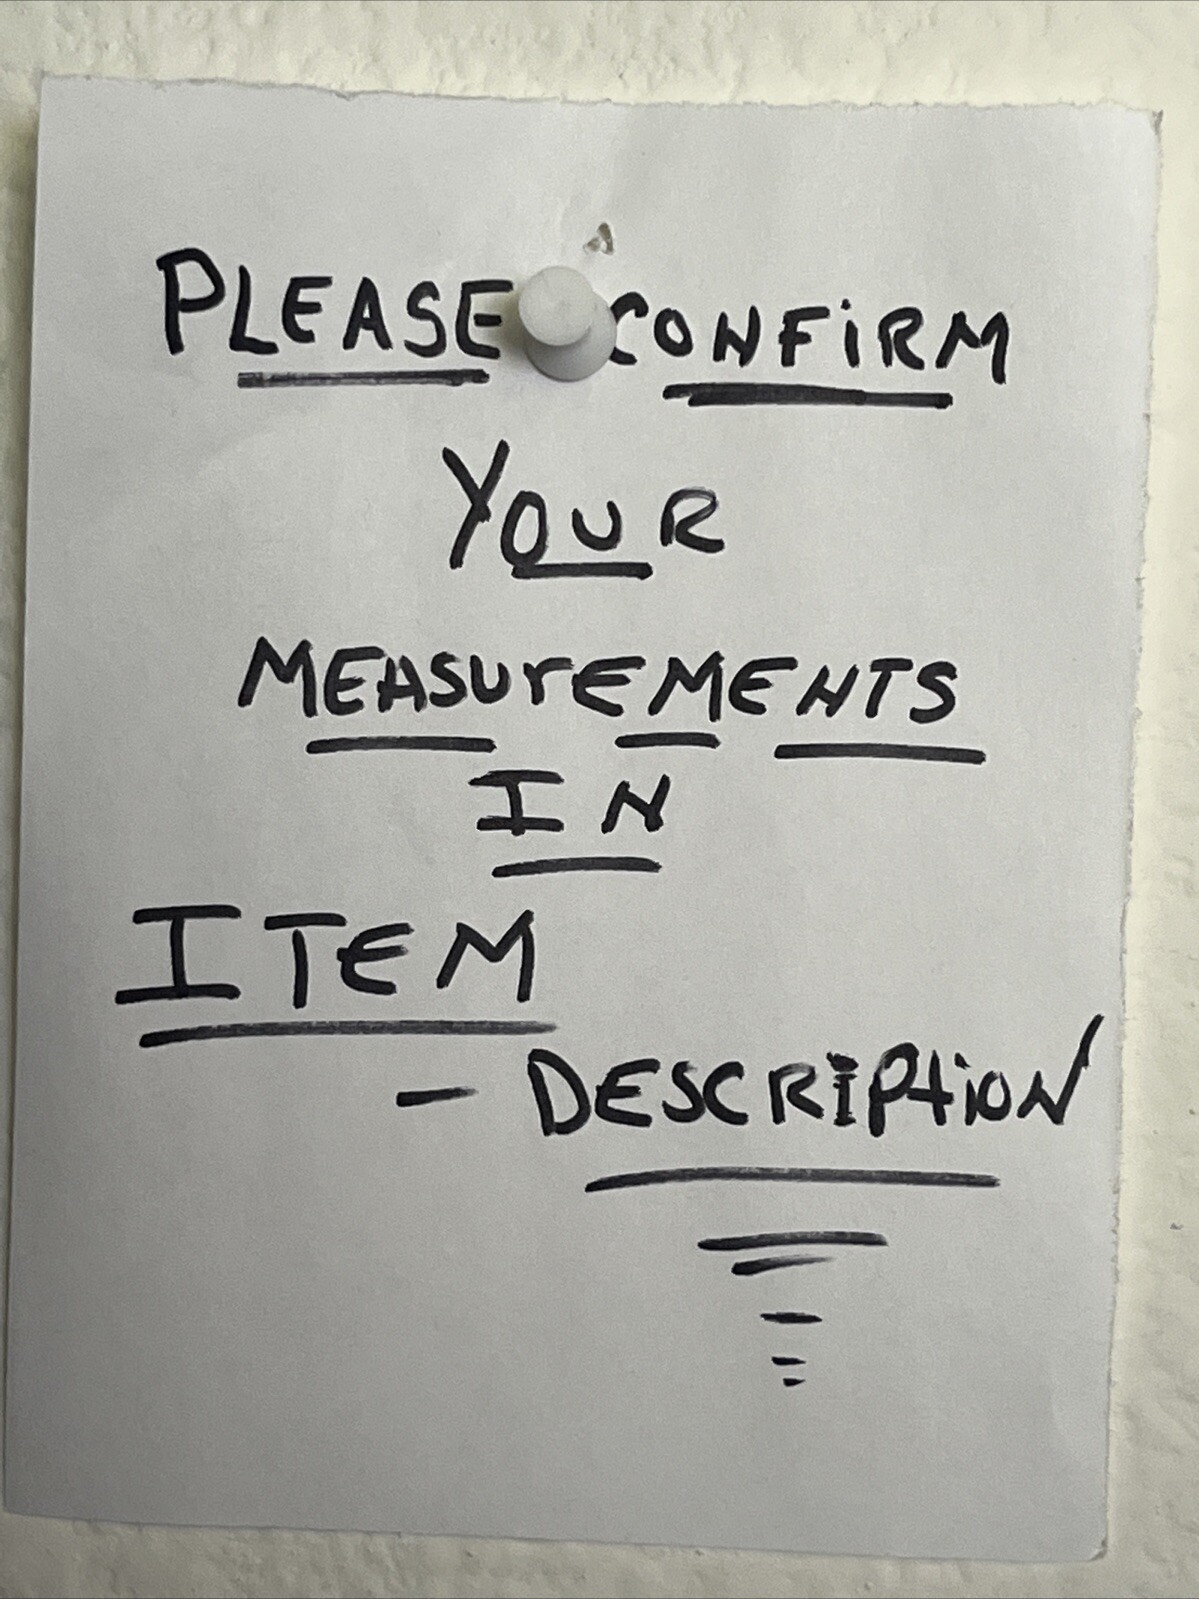 PLEASE CONFIRM
YOUR
MEASUrEMENTS
IN
ITEM
- DESCRiPtiON